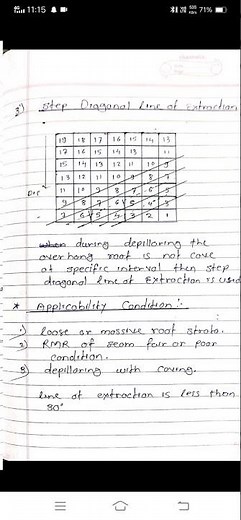 11:15 71%
3) Step Diagonal Line of Extraction
19 18 17 16 15 14 13
17 16 15 14 13 11
15 14 13 12 11 10 9
13 12 11 10 9 8 7
11 10 9 8 7 6 5
9 8 7 6 5 4 3
7 6 5 4 3 2 1
during depillaring the
over hang roof is not cave
at specific interval then step
diagonal line of Extraction is used
* Applicability Condition :-
1) loose or massive roof strata.
2) RMR of seam fair or poor
condition.
3) depillaring with caving.
line of extraction is less than
30°